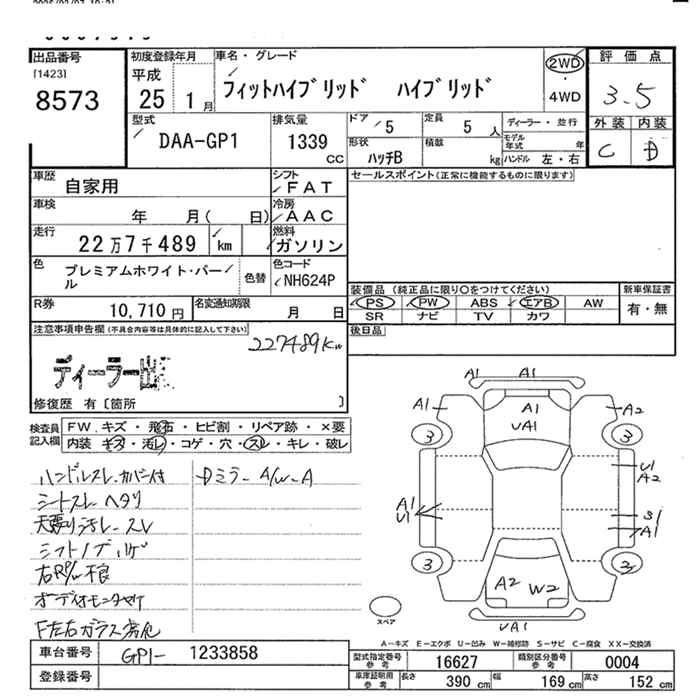 出品番号
[1423]
8573
初度登録年月
平成
25年 1月
車名・グレード
フィットハイブリッド ハイブリッド
2WD
・
4WD
評価点
3.5
外装 内装
C D
型式
DAA-GP1
排気量
1339 cc
ドア
5
定員
5人
形状
ハッチB
積載
kg
ディーラー・並行
モデル年式 年
ハンドル 左・右
車歴
自家用
シフト
FAT
セールスポイント(正常に機能するものに限ります)
車検
年 月( 日)
冷房
AAC
走行
22万7千489 km
燃料
ガソリン
色
プレミアムホワイト・パール
色替
色コード
NH624P
装備品(純正品に限り〇をつけてください)
PS PW ABS エアB AW
SR ナビ TV カワ
新車保証書
有・無
R券
10,710円
名変通知期限
月 日
後日品
注意事項申告欄(不具合内容等は具体的に記入して下さい)
227489Km
ディーラー出
修復歴 有〔箇所 〕
検査員記入欄
FW.キズ・飛石・ヒビ割・リペア跡・×要
内装 キズ・汚レ・コゲ・穴・スレ・キレ・破レ
ハンドルスレ.カバー付
Dミラー A/W-A
シートスレ ヘタリ
シフトノブハゲ
右RP/w不良
F左右ガラス劣化
A1
A1
A1
A1
UA1
A2
3
3
U1
A2
A1
U1
S1
A1
3
3
A2
W2
UA1
スペア
A-キズ E-エクボ U-凹み W-補修跡 S-サビ C-腐食 XX-交換済
車台番号
GP1- 1233858
登録番号
型式指定番号
参考
16627
類別区分番号
参考
0004
車庫証明用
参考
長さ 390 cm
幅 169 cm
高さ 152 cm